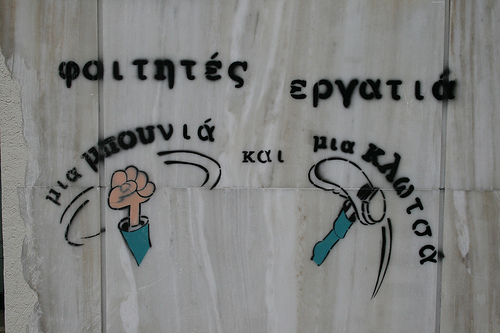 φοιτητές εργατιά
μια μπουνιά και μια κλωτσά